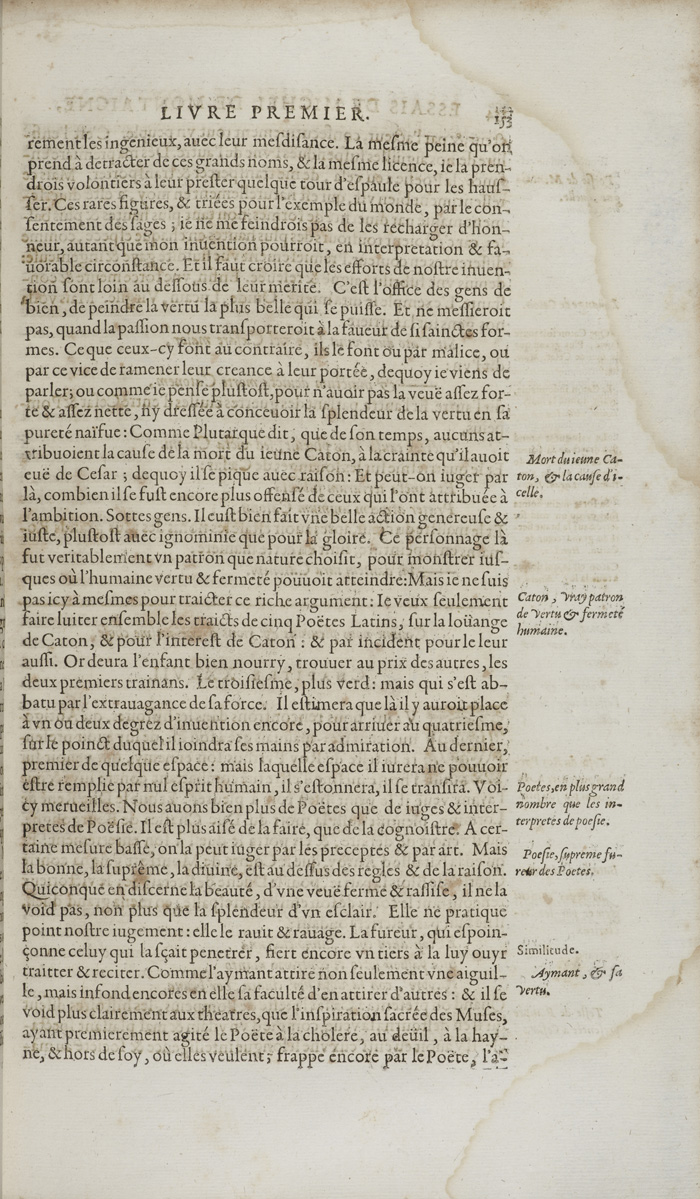 LIVRE PREMIER.
153
rement les ingenieux, auec leur mesdisance. La mesme peine qu'on
prend à detracter de ces grands noms, & la mesme licence, ie la pren-
drois volontiers à leur prester quelque tour d'espaule pour les haus-
ser. Ces rares figures, & triées pour l'exemple du monde, par le con-
sentement des sages ; ie ne me feindrois pas de les recharger d'hon-
neur, autant que mon inuention pourroit, en interpretation & fa-
uorable circonstance. Et il faut croire que les efforts de nostre inuen-
tion sont loin au dessous de leur merite. C'est l'office des gens de
bien, de peindre la vertu la plus belle qui se puisse. Et ne messieroit
pas, quand la passion nous transporteroit à la faueur de si sainctes for-
mes. Ce que ceux-cy font au contraire, ils le font ou par malice, ou
par ce vice de ramener leur creance à leur portée, dequoy ie viens de
parler; ou comme ie pense plustost, pour n'auoir pas la veuë assez for-
te & assez nette, ny dressée à conceuoir la splendeur de la vertu en sa
pureté naïfue : Comme Plutarque dit, que de son temps, aucuns at-
tribuoient la cause de la mort du ieune Caton, à la crainte qu'il auoit
euë de Cesar ; dequoy il se pique auec raison : Et peut-on iuger par
là, combien il se fust encore plus offensé de ceux qui l'ont attribuée à
l'ambition. Sottes gens. Il eust bien fait vne belle action genereuse &
iuste, plustost auec ignominie que pour la gloire. Ce personnage là
fut veritablement vn patron que nature choisit, pour monstrer ius-
ques où l'humaine vertu & fermeté pouuoit atteindre: Mais ie ne suis
pas icy à mesmes pour traicter ce riche argument : Ie veux seulement
faire luiter ensemble les traicts de cinq Poëtes Latins, sur la loüange
de Caton, & pour l'interest de Caton : & par incident pour le leur
aussi. Or deura l'enfant bien nourry, trouuer au prix des autres, les
deux premiers trainans. Le troisiesme, plus verd : mais qui s'est ab-
batu par l'extrauagance de sa force. Il estimera que là il y auroit place
à vn ou deux degrez d'inuention encore, pour arriuer au quatriesme,
sur le poinct duquel il ioindra ses mains par admiration. Au dernier,
premier de quelque espace : mais laquelle espace il iurera ne pouuoir
estre remplie par nul esprit humain, il s'estonnera, il se transira. Voi-
cy merueilles. Nous auons bien plus de Poëtes que de iuges & inter-
pretes de Poësie. Il est plus aisé de la faire, que de la cognoistre. A cer-
taine mesure basse, on la peut iuger par les preceptes & par art. Mais
la bonne, la suprême, la diuine, est au dessus des regles & de la raison.
Quiconque en discerne la beauté, d'vne veuë ferme & rassise, il ne la
void pas, non plus que la splendeur d'vn esclair. Elle ne pratique
point nostre iugement : elle le rauit & rauage. La fureur, qui espoin-
çonne celuy qui la sçait penetrer, fiert encore vn tiers à la luy ouyr
traitter & reciter. Comme l'aymant attire non seulement vne aiguil-
le, mais infond encores en elle sa faculté d'en attirer d'autres : & il se
void plus clairement aux theatres, que l'inspiration sacrée des Muses,
ayant premierement agité le Poëte à la cholere, au deüil, à la hay-
ne, & hors de soy, où elles veulent ; frappe encore par le Poëte, l'a-
Mort du ieune Ca-
ton, & la cause d'i-
celle.
Caton, vray patron
de vertu & fermeté
humaine.
Poetes, en plus grand
nombre que les in-
terpretes de poesie.
Poesie, supreme fu-
reur des Poetes.
Similitude.
Aymant, & sa
vertu.